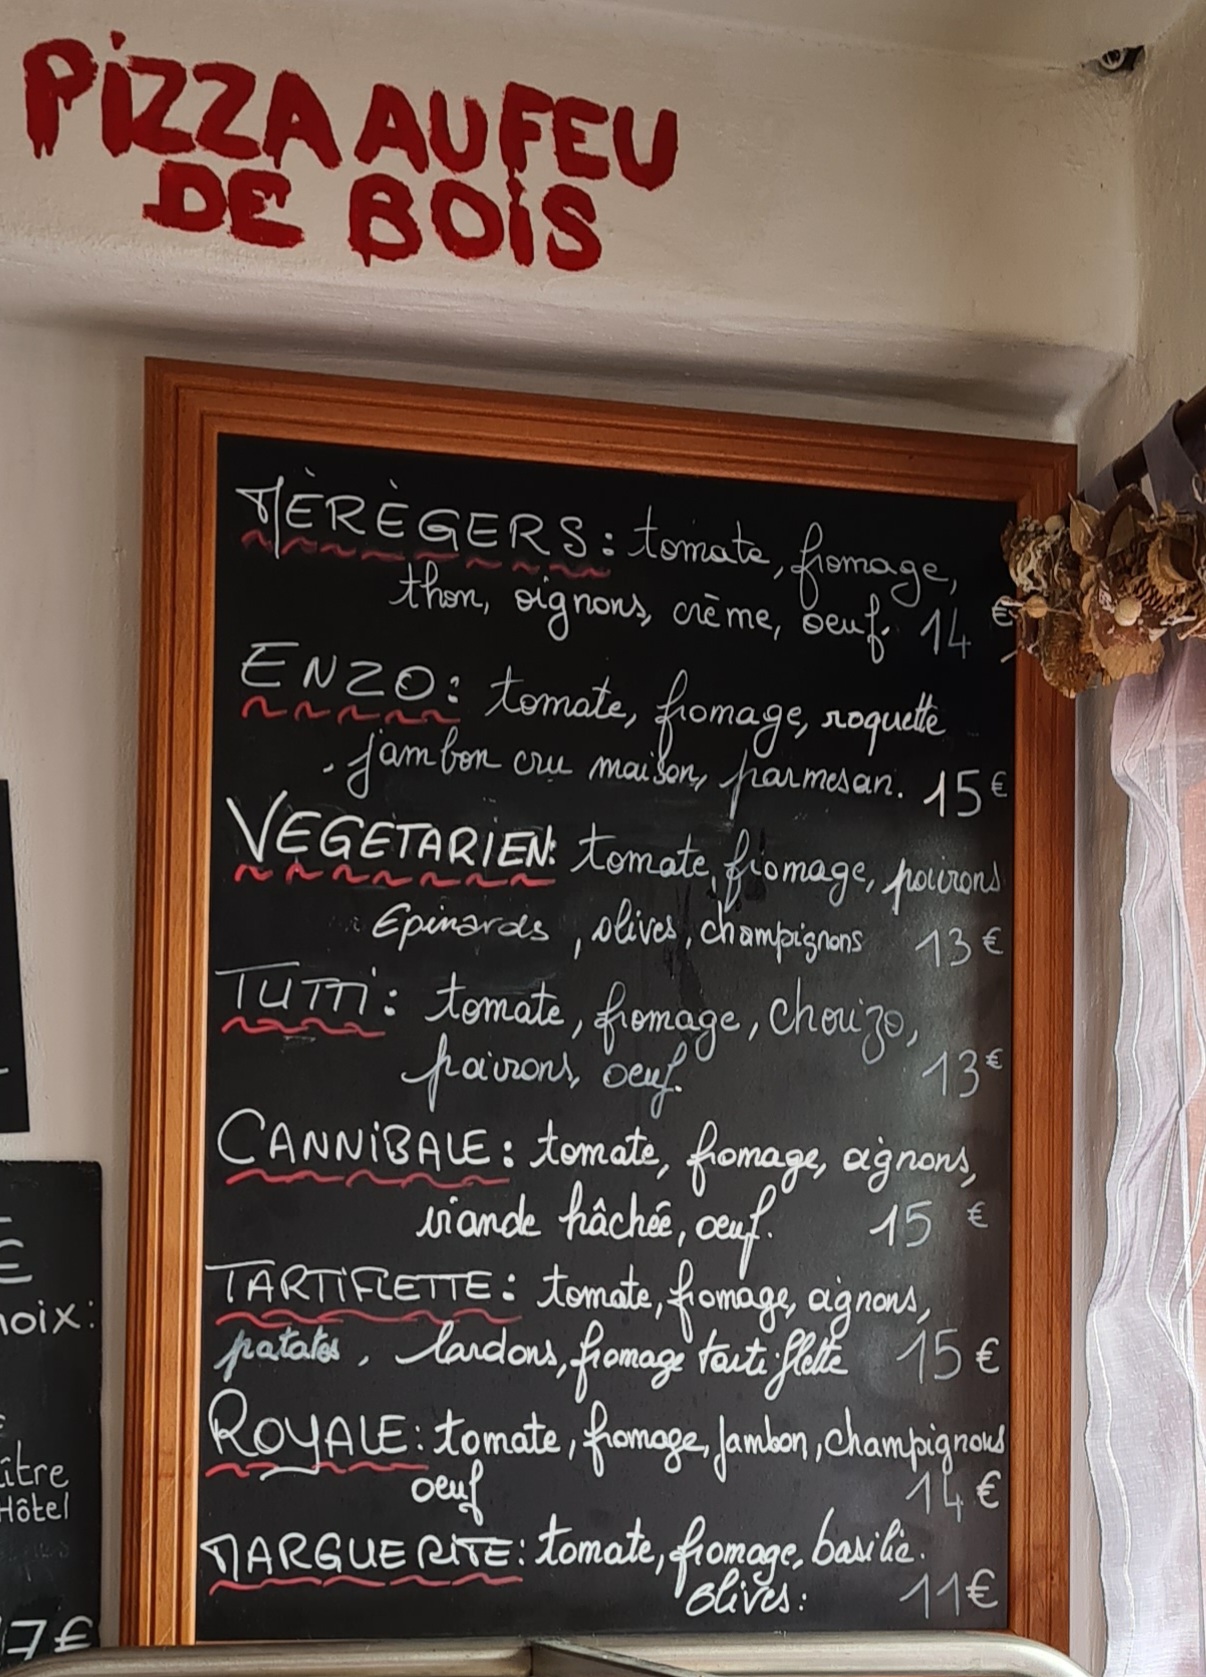 PiZZA AU FEU
DE BOiS
MÈRÈGERS : tomate, fromage,
thon, oignons, crème, oeuf. 14 €
ENZO : tomate, fromage, roquette
. jambon cru maison, parmesan. 15 €
VEGETARIEN: tomate, fromage, poivrons
Epinards , olives, champignons 13 €
TUTTi : tomate, fromage, chorizo,
poivrons, oeuf. 13 €
CANNiBALE : tomate, fromage, oignons,
viande hâchée, oeuf. 15 €
TARTiFLETTE : tomate, fromage, oignons,
patates , lardons, fromage tartiflette 15 €
ROYALE : tomate, fromage, Jambon, champignons
oeuf 14 €
MARGUERiTE : tomate, fromage, basilic.
olives : 11 €
€
hoix :
€
ître
Hôtel
7 €